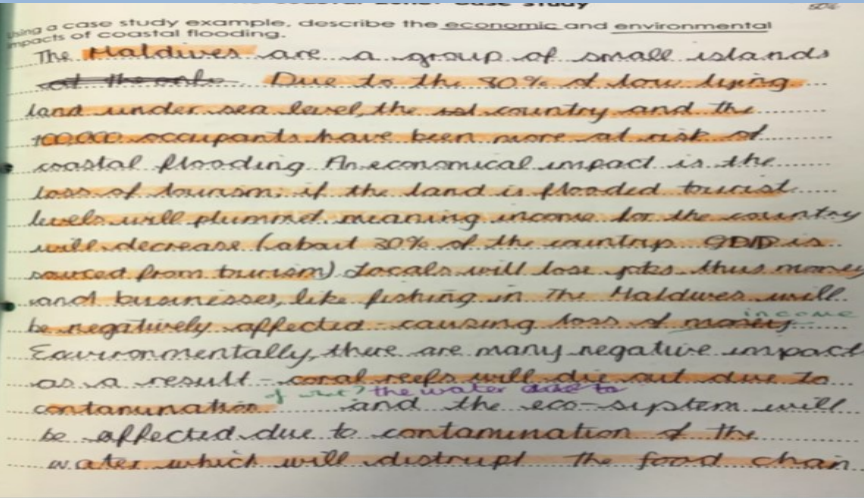 Using a case study example, describe the economic and environmental
impacts of coastal flooding.
The Maldives are a group of small islands
Due to the 80% of low lying
land under sea level, the country and the
100,000 occupants have been more at risk of
coastal flooding. An economical impact is the
loss of tourism; if the land is flooded tourist
levels will plummet meaning income for the country
will decrease (about 30% of the countrys GDP is
sourced from tourism) Locals will lose jobs thus money
and businesses, like fishing in The Maldives will
income
be negatively affected causing loss of money
Environmentally, there are many negative impact
as a result - coral reefs will die out due to
of what? the water due to
contamination and the eco-system will
be affected due to contamination of the
water which will distrupt the food chain